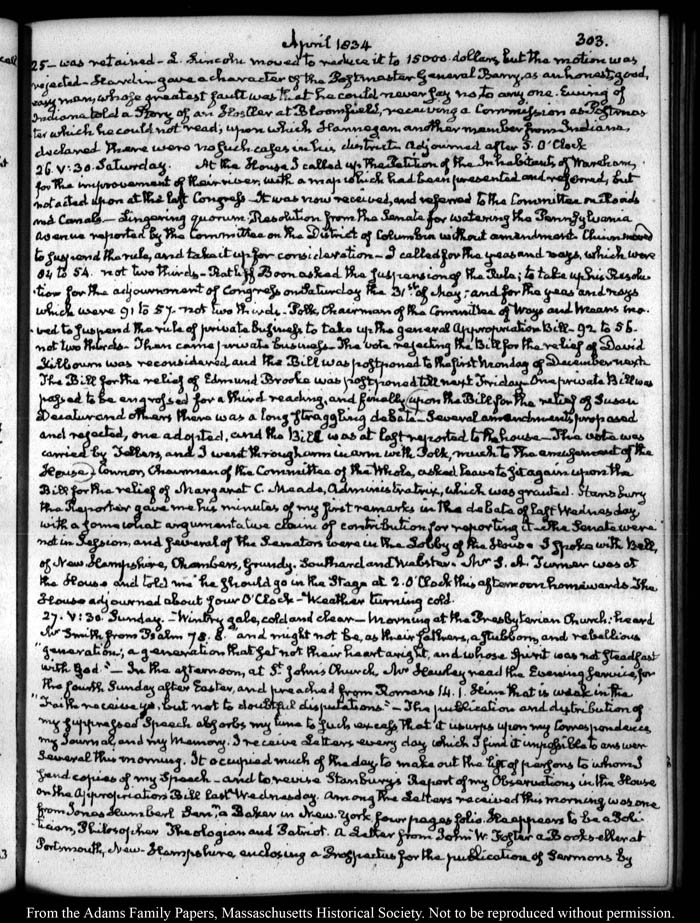 April 1834
303.
25 – was retained – L. Lincoln moved to reduce it to 15000 dollars, but the motion was
rejected – Hardin gave a character of the Postmaster General Barry, as an honest, good,
easy man, whose greatest fault was that he could never say no to any one. Ewing of
Indiana told a story of an Hostler at Bloomfield, receiving a Commission as Postmas
ter which he could not read; upon which Hannegan another member from Indiana,
declared there were no such cases in his district. Adjourned after 5. O'Clock
26. V:30. Saturday. At the House I called up the Petition of the Inhabitants of Wareham,
for the improvement of their river, with a map which had been presented and referred, but
not acted upon at the last Congress – It was now received, and referred to the Committee on Roads
and Canals – Lingering quorum. Resolution from the Senate for watering the Pennsylvania
Avenue reported by the Committee on the District of Columbia without amendment. Chinn moved
to suspend the rule, and take it up for consideration – I called for the yeas and nays, which were
84 to 54. not two thirds – Ratliff Boon asked the suspension of the Rule; to take up his Resolu
tion for the adjournment of Congress on Saturday the 31st of May; and for the yeas and nays
which were 91 to 57. not two thirds. Polk, Chairman of the Committee of Ways and Means mo.
ved to suspend the rule of private business to take up the general Appropriation Bill – 92 to 56.
not two thirds. Then came private business – The vote rejecting the Bill for the relief of David
Kilbourn was reconsidered and the Bill was postponed to the first Monday of December next.
The Bill for the relief of Edmund Brooke was postponed till next Friday. One private Bill was
passed to be engrossed for a third reading, and finally upon the Bill for the relief of Susan
Decatur and others there was a long straggling debate – Several amendments proposed
and rejected, one adopted, and the Bill was at last reported to the house – The vote was
carried by Tellers, and I went through arm in arm with Polk, much to the amusement of the
House – Connor, Chairman of the Committee of the Whole, asked leave to sit again upon the
Bill for the relief of Margaret C. Meade, Administratrix, which was granted. Stansbury
the Reporter gave me his minutes of my first remarks in the debate of last Wednesday
with a somewhat argumentative claim of contribution for reporting it – The Senate were
not in Session, and several of the Senators were in the Lobby of the House – I spoke with Bell,
of New Hampshire, Chambers, Grundy, Southard and Webster. Mr S. A. Turner was at
the House and told me he should go in the Stage at 2. O'Clock this afternoon homewards. The
House adjourned about four O'Clock – Weather turning cold.
27. V:30. Sunday. – Wintry gale, cold and clear – Morning at the Presbyterian Church: heard
Mr Smith from Psalm 78. 8. "and might not be, as their fathers, a stubborn and rebellious
"generation; a generation that set not their heart aright, and whose spirit was not steadfast
with God." – In the afternoon, at St. John's Church, Mr Hawley read the Evening service, for
the fourth Sunday after Easter, and preached from Romans 14. 1. Him that is weak in the
"Faith receive ye, but not to doubtful disputations." – The publication and distribution of
my suppressed Speech absorbs my time to such excess that it usurps upon my Correspondence,
my Journal, and my Memory. I receive Letters every day which I find it impossible to answer
Several this morning. It occupied much of the day to make out the list of persons to whom I
send copies of my Speech – and to revise Stansbury's Report of my Observations in the House
on the Appropriation Bill last Wednesday. Among the Letters received this morning was one
from Jonas Humbert Senr, a Baker in New York four pages folio. He appears to be a Poli
tician, Philosopher Theologian and Patriot. A Letter from John W. Foster a Bookseller at
Portsmouth, New-Hampshire, enclosing a Prospectus for the publication of Sermons by
From the Adams Family Papers, Massachusetts Historical Society. Not to be reproduced without permission.